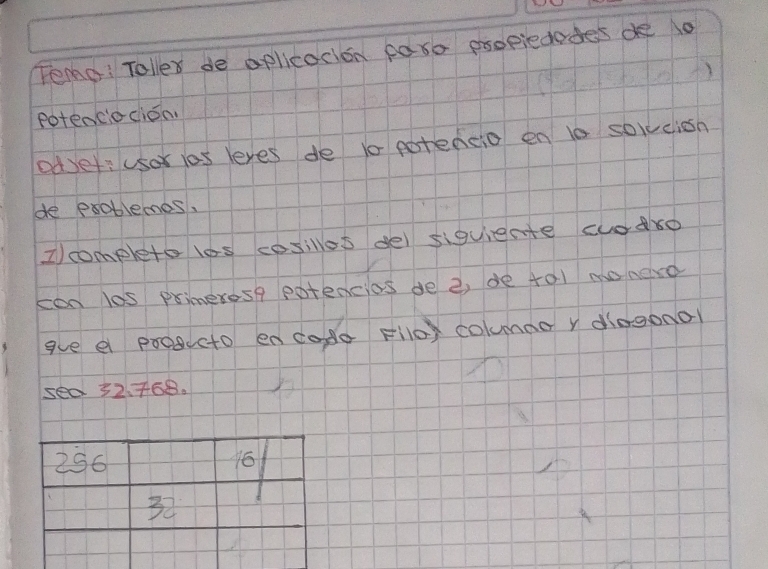 Tema: Taller de aplicación para propiedades de la
potenciación.
Objet: usar las leyes de la potencia en la solución
de problemas.
1) completo las casillas del siguiente cuadro
con las primeros 9 potencias de 2, de tal manera
que el producto en cada Fila, columna y diagonal
sea 32.768.
256 16
32